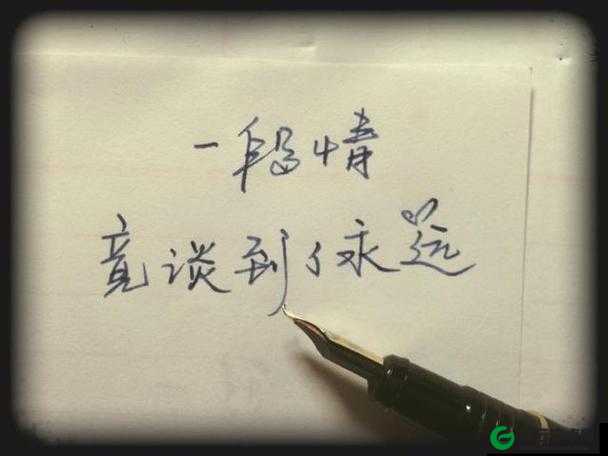 一段情
竟谈到了永远